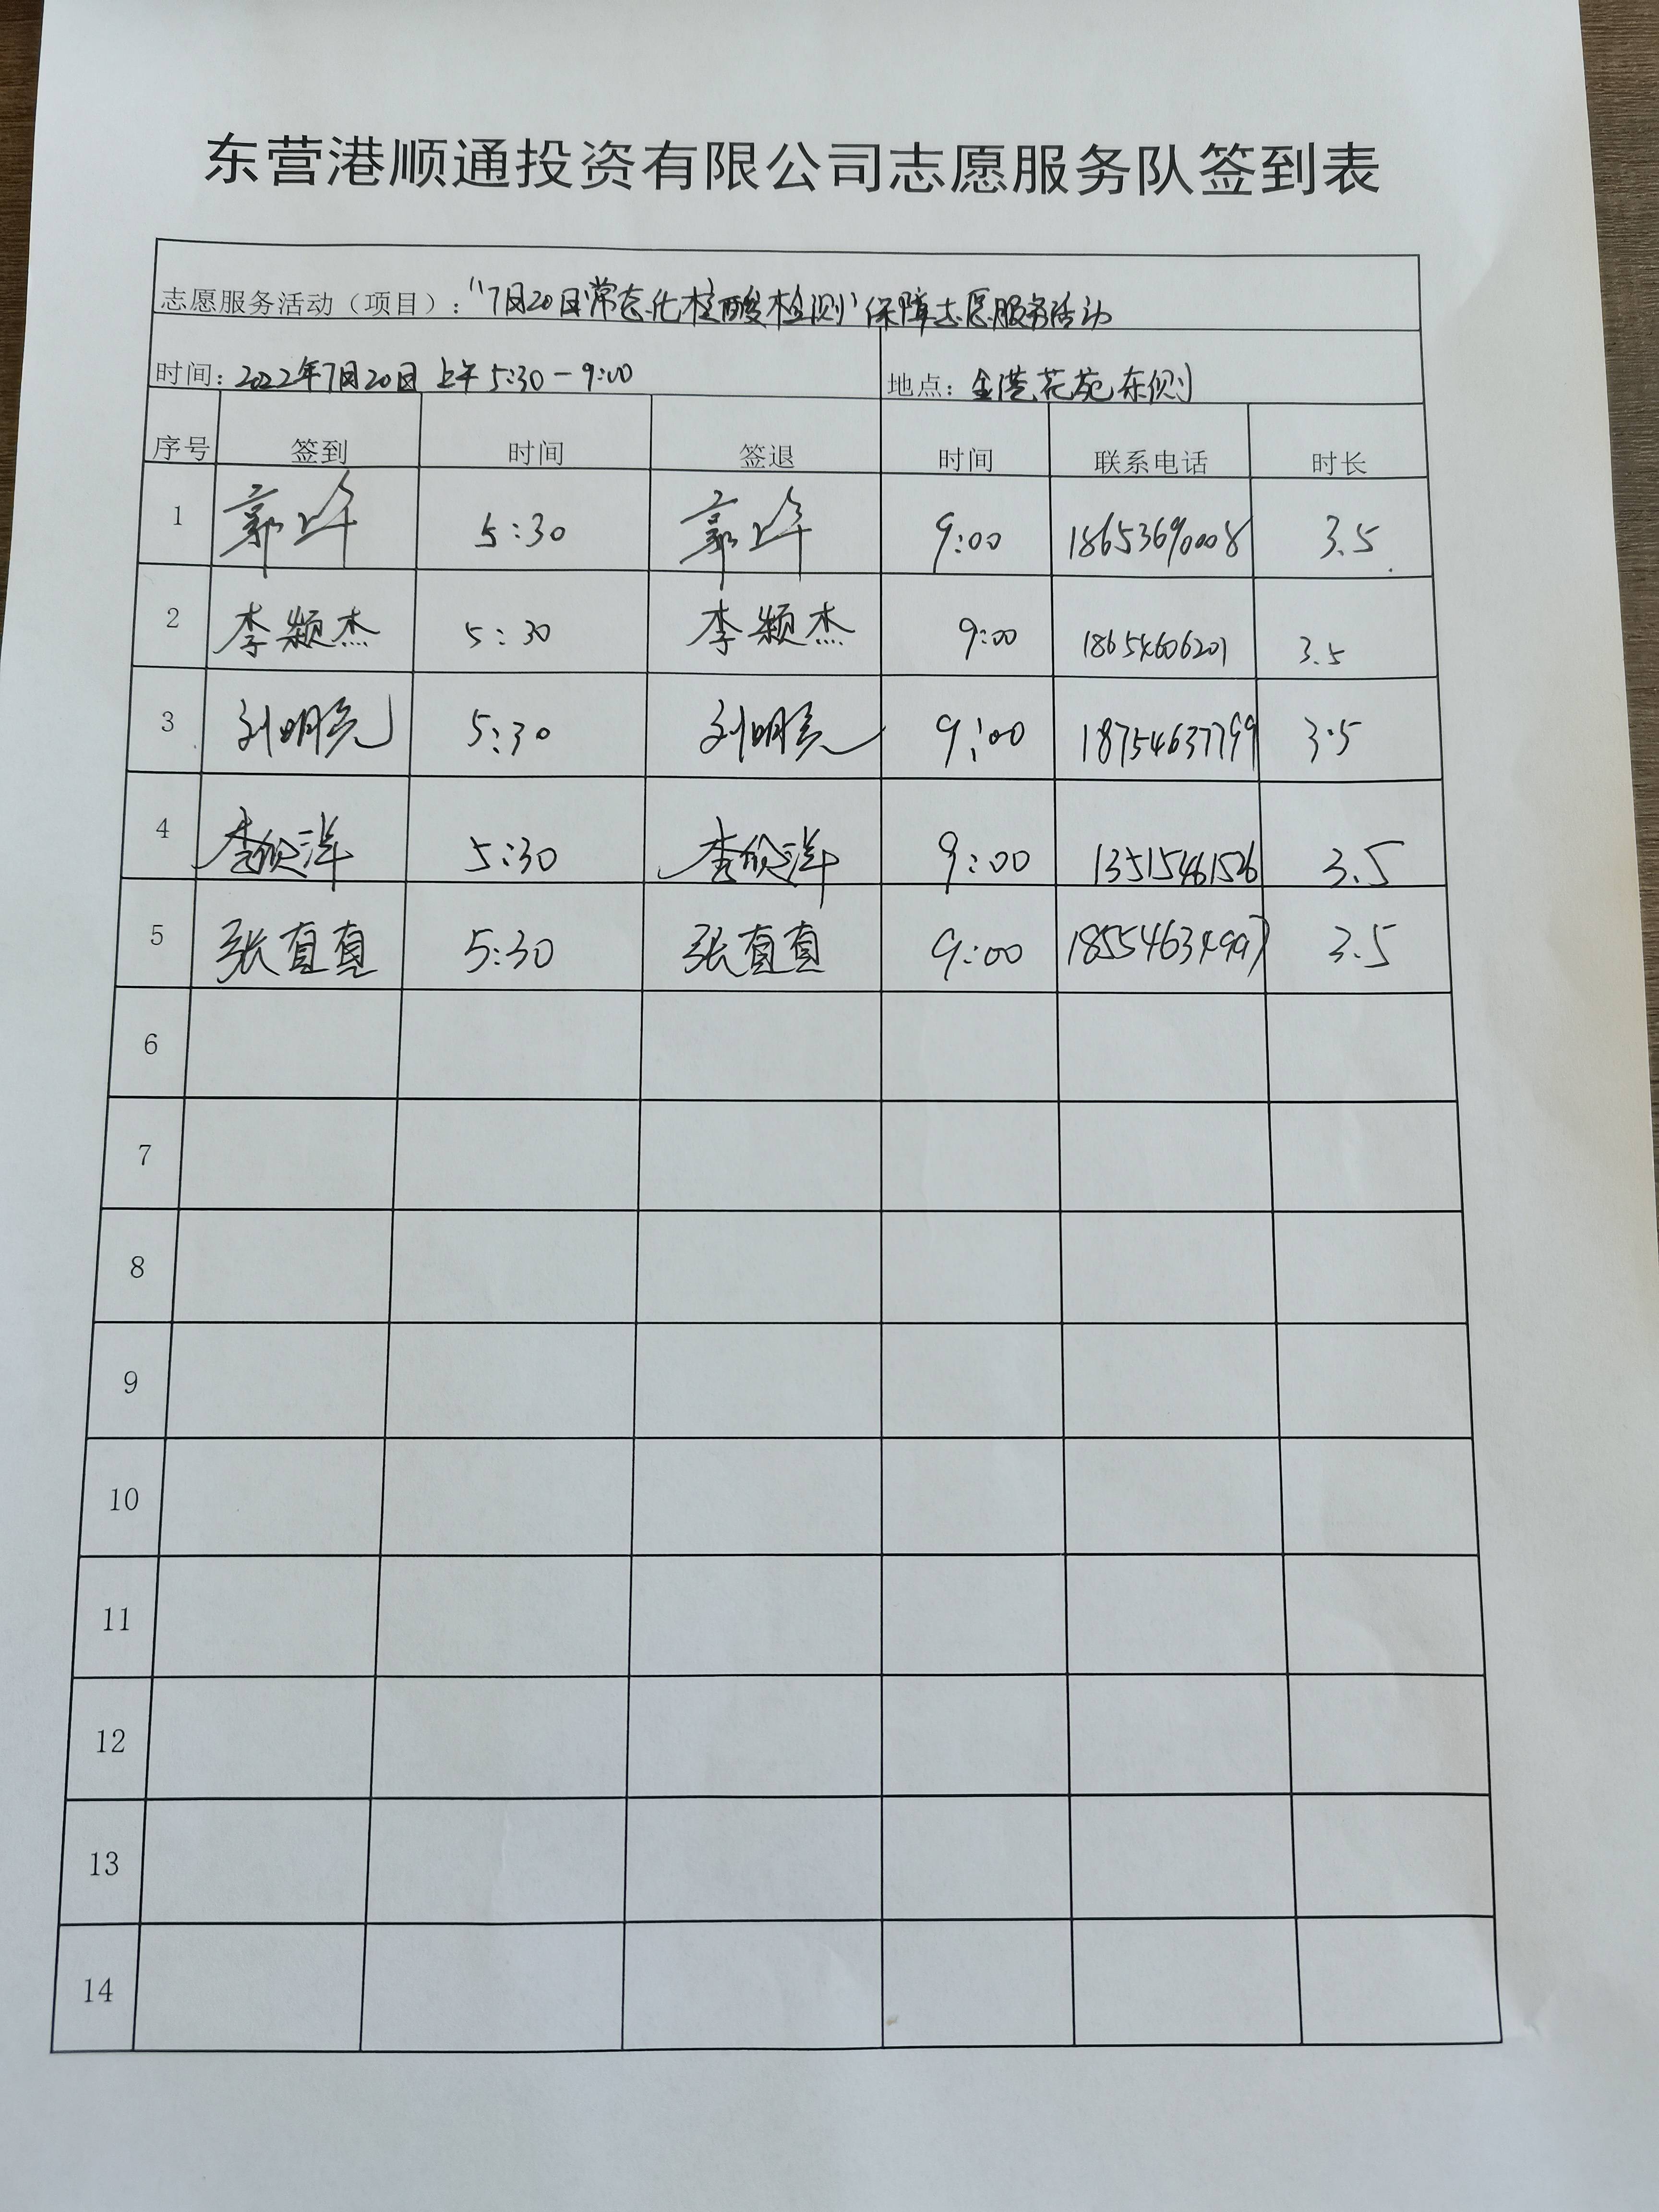 东营港顺通投资有限公司志愿服务队签到表
志愿服务活动（项目）：“7月20日常态化核酸检测”保障志愿服务活动
时间：2022年7月20日 上午 5:30-9:00 地点：金港花苑东侧
序号 签到 时间 签退 时间 联系电话 时长
1 郭 5:30 郭 9:00 18653690008 3.5
2 李颖杰 5:30 李颖杰 9:00 18654606201 3.5
3 刘明亮 5:30 刘明亮 9:00 18754637799 3.5
4 李欣洋 5:30 李欣洋 9:00 13515461526 3.5
5 张直直 5:30 张直直 9:00 18554634997 3.5
6
7
8
9
10
11
12
13
14